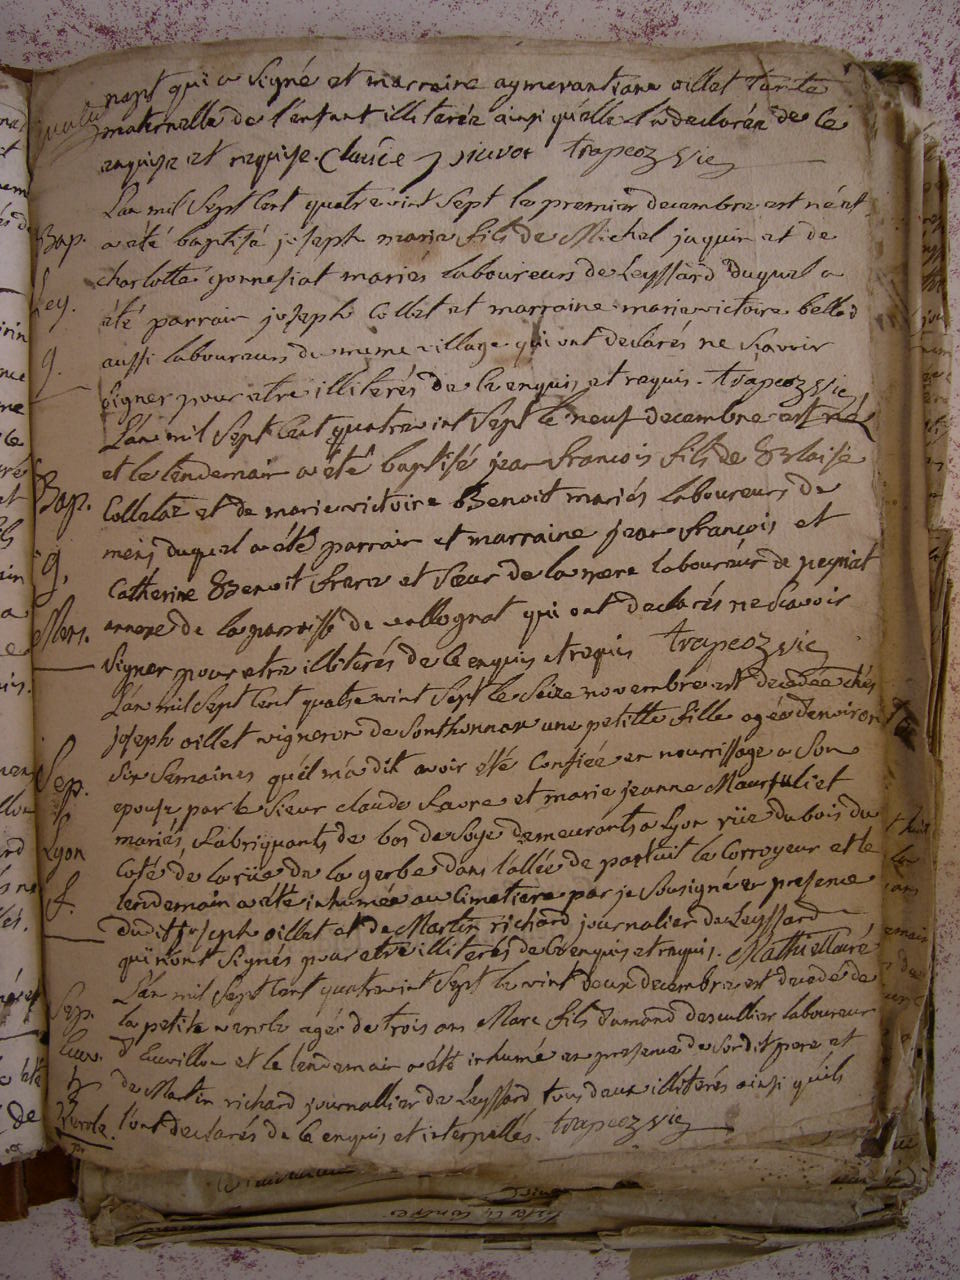 napt qui a signé et marraine aymerantiane oillet tante
maternelle de l'enfant illiterée ainsi qu'elle l'a declarée de ce
enquise et requise. Claude j pieuvot trapeoz vic
L'an mil sept cent quatre vint sept le premier decembre est né et
Bap. a été baptisé joseph marie fils de Michel jaquin et de
charlotte gonnesiat mariés laboureurs de Leyssard duquel a
Ley. été parrain joseph collet et marraine marie victoire bellod
g. aussi laboureurs du meme village qui ont declarés ne sçavoir
signer pour etre illiterés de ce enquis et requis. trapeoz vic
L'an mil sept cent quatre vint sept le neuf decembre est né
et le lendemain a été baptisé jean françois fils de Blaise
Bap. Colletaz et de marie victoire Benoit mariés laboureurs de
mens duquel a été parrain et marraine jean françois et
g. Catherine Benoit frere et sœur de la mere laboureur de peyriat
Mens. annexe de la parroisse de vollognat qui ont declarés ne scavoir
signer pour etre illiterés de ce enquis et requis trapeoz vic
L'an mil sept cent quatre vint sept le seize novembre est decedée chés
joseph oillet vigneron de Sonthonnax une petitte fille agée d'environ
Sep. six semaines qu'il m'a dit avoir été confiée en nourrissage a son
epouse, par le sieur claude favre et marie jeanne Maurjuliet
mariés, fabriquants de bas de soye demeurants a Lyon rüe du bois du
Lyon coté de la rüe de la gerbe dans l'allée de parfait le corroyeur et le
f. lendemain a été inhumée au cimetiere par je sousigné en presence
dudit joseph oillet et de Martin richard journalier de Leyssard
qui n'ont signés pour etre illiterés de ce enquis et requis. Mathie
L'an mil sept cent quatre vint sept le vint deux decembre est decedé de
Sep. la petite verole agé de trois ans Marc fils d'amand descullier laboureur
Cuv. d'Cuvillon et le lendemain a été inhumé en presence de sondit pere et
de Martin richard journallier de Leyssard tous deux illiterés ainsi qu'ils
Verole. l'ont declarés de ce enquis et interpellés. trapeoz vic